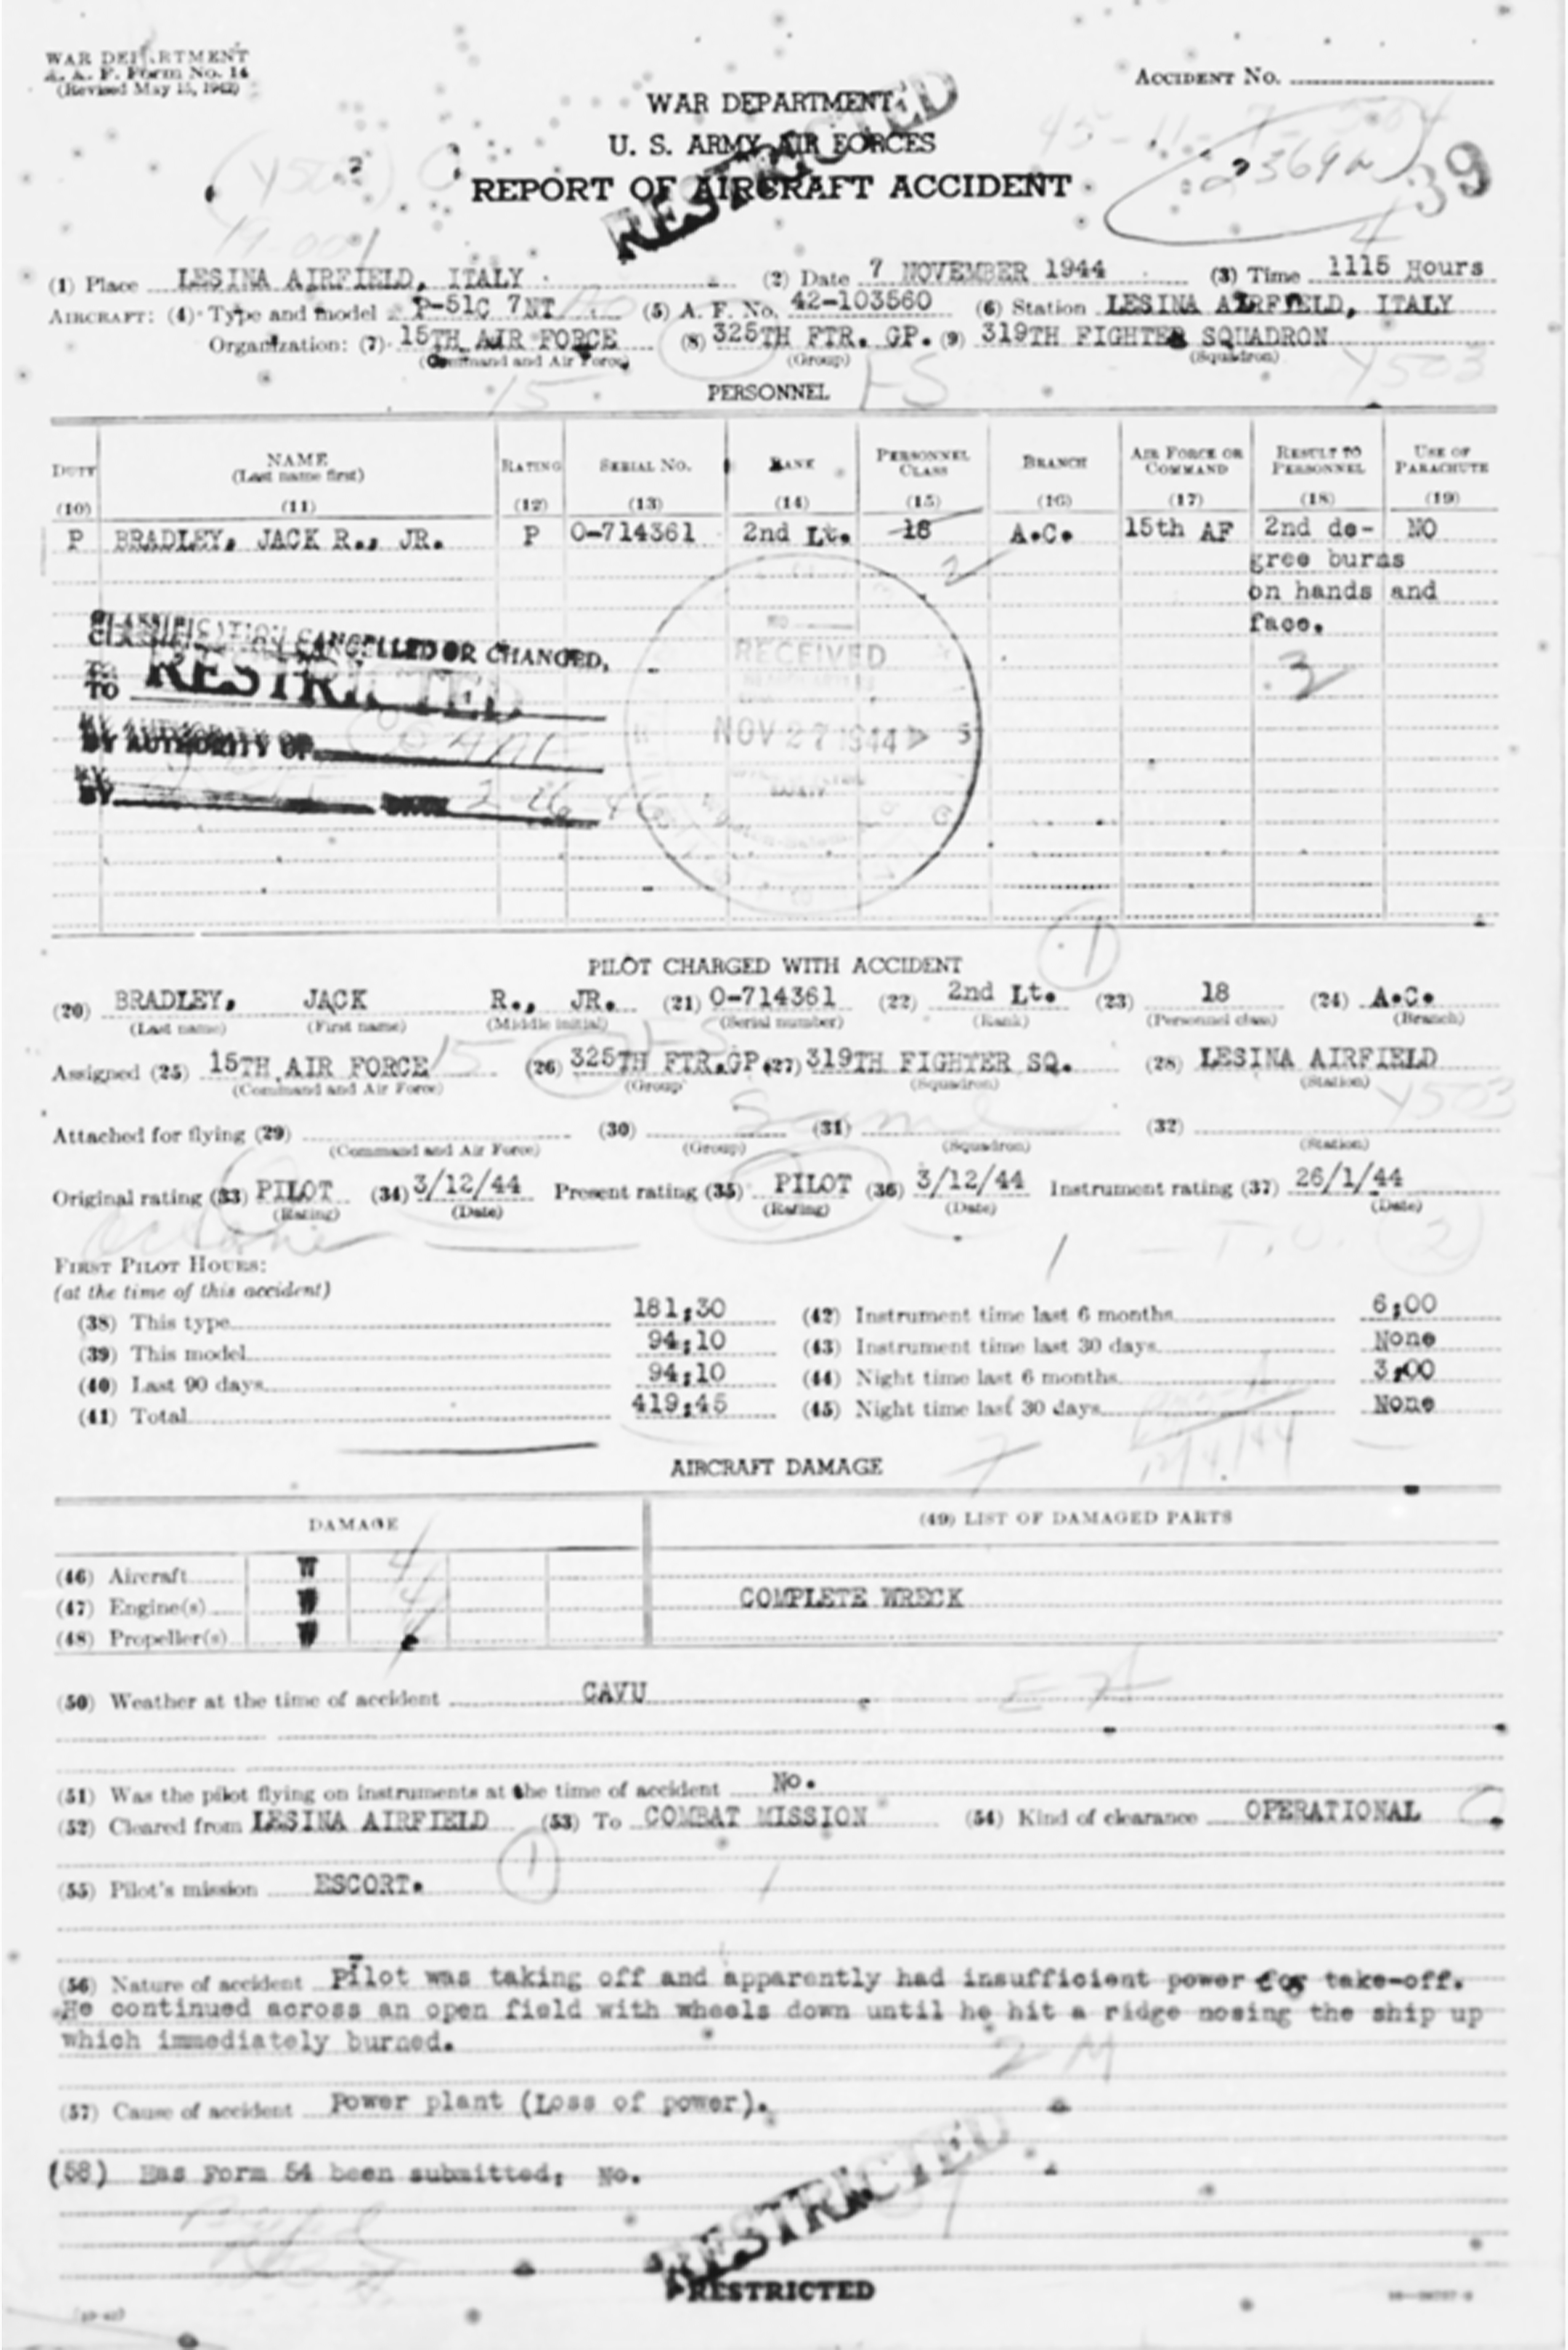 WAR DEPARTMENT
A. A. F. Form No. 14
(Revised May 15, 1942)
ACCIDENT No.
WAR DEPARTMENT
U. S. ARMY AIR FORCES
REPORT OF AIRCRAFT ACCIDENT
RESTRICTED
39
(1) Place LESINA AIRFIELD, ITALY (2) Date 7 NOVEMBER 1944 (3) Time 1115 Hours
AIRCRAFT: (4) Type and model P-51C 7NT (5) A. F. No. 42-103560 (6) Station LESINA AIRFIELD, ITALY
Organization: (7) 15TH AIR FORCE (8) 325TH FTR. GP. (9) 319TH FIGHTER SQUADRON
(Command and Air Force) (Group) (Squadron)
15 FS Y503
PERSONNEL
DUTY NAME (Last name first) RATING SERIAL No. RANK PERSONNEL CLASS BRANCH AIR FORCE OR COMMAND RESULT TO PERSONNEL USE OF PARACHUTE
(10) (11) (12) (13) (14) (15) (16) (17) (18) (19)
P BRADLEY, JACK R., JR. P O-714361 2nd Lt. 18 A.C. 15th AF 2nd de- NO
gree burns
on hands and
face.
2
3
CLASSIFICATION CANCELLED OR CHANGED,
TO RESTRICTED
BY AUTHORITY OF
BY DATE
RECEIVED
NOV 27 1944
PILOT CHARGED WITH ACCIDENT
1
(20) BRADLEY, JACK R., JR. (21) O-714361 (22) 2nd Lt. (23) 18 (24) A.C.
(Last name) (First name) (Middle initial) (Serial number) (Rank) (Personnel class) (Branch)
Assigned (25) 15TH AIR FORCE (26) 325TH FTR.GP. (27) 319TH FIGHTER SQ. (28) LESINA AIRFIELD
(Command and Air Force) (Group) (Squadron) (Station)
Same Y503
Attached for flying (29) (30) (31) (32)
(Command and Air Force) (Group) (Squadron) (Station)
Original rating (33) PILOT (34) 3/12/44 Present rating (35) PILOT (36) 3/12/44 Instrument rating (37) 26/1/44
(Rating) (Date) (Rating) (Date) (Date)
FIRST PILOT HOURS:
(at the time of this accident)
(38) This type 181;30 (42) Instrument time last 6 months 6;00
(39) This model 94;10 (43) Instrument time last 30 days None
(40) Last 90 days 94;10 (44) Night time last 6 months 3;00
(41) Total 419;45 (45) Night time last 30 days None
AIRCRAFT DAMAGE
DAMAGE (49) LIST OF DAMAGED PARTS
(46) Aircraft W
(47) Engine(s) W COMPLETE WRECK
(48) Propeller(s) W
(50) Weather at the time of accident CAVU
(51) Was the pilot flying on instruments at the time of accident No.
(52) Cleared from LESINA AIRFIELD (53) To COMBAT MISSION (54) Kind of clearance OPERATIONAL
1
(55) Pilot's mission ESCORT.
(56) Nature of accident Pilot was taking off and apparently had insufficient power for take-off.
He continued across an open field with wheels down until he hit a ridge nosing the ship up
which immediately burned.
2 M
(57) Cause of accident Power plant (Loss of power).
(58) Has Form 54 been submitted; No.
RESTRICTED
RESTRICTED